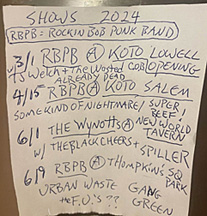 SHOWS 2024
RBPB = ROCKIN BOB PUNK BAND
3/1 RBPB @ KOTO LOWELL
WELCH & THE COB OPENING
ALREADY DEAD
4/15 RBPB @ KOTO SALEM
SOME KIND OF NIGHTMARE / SUPER BEEF!
6/1 THE WYNOTTS @ NEW WORLD TAVERN
W/ THE BLACK CHEERS + SPILLER
6/9 RBPB @ THOMPKIN'S SQ PARK
URBAN WASTE GANG GREEN
THE F.U.'S ??